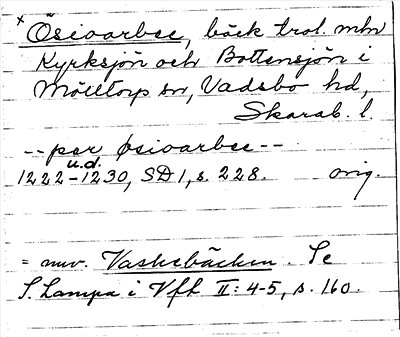 × Ösioarbec, bäck trol. mln
Kyrksjön och Bottensjön i
Mölltorp sn, Vadsbo hd,
Skarab. l.
-- per øsioarbec --
u.d.
1222-1230, SD 1, s. 228. orig.
= nuv. Vaskebäcken. Se
S. Lampa i Vft II: 4-5, s. 160.